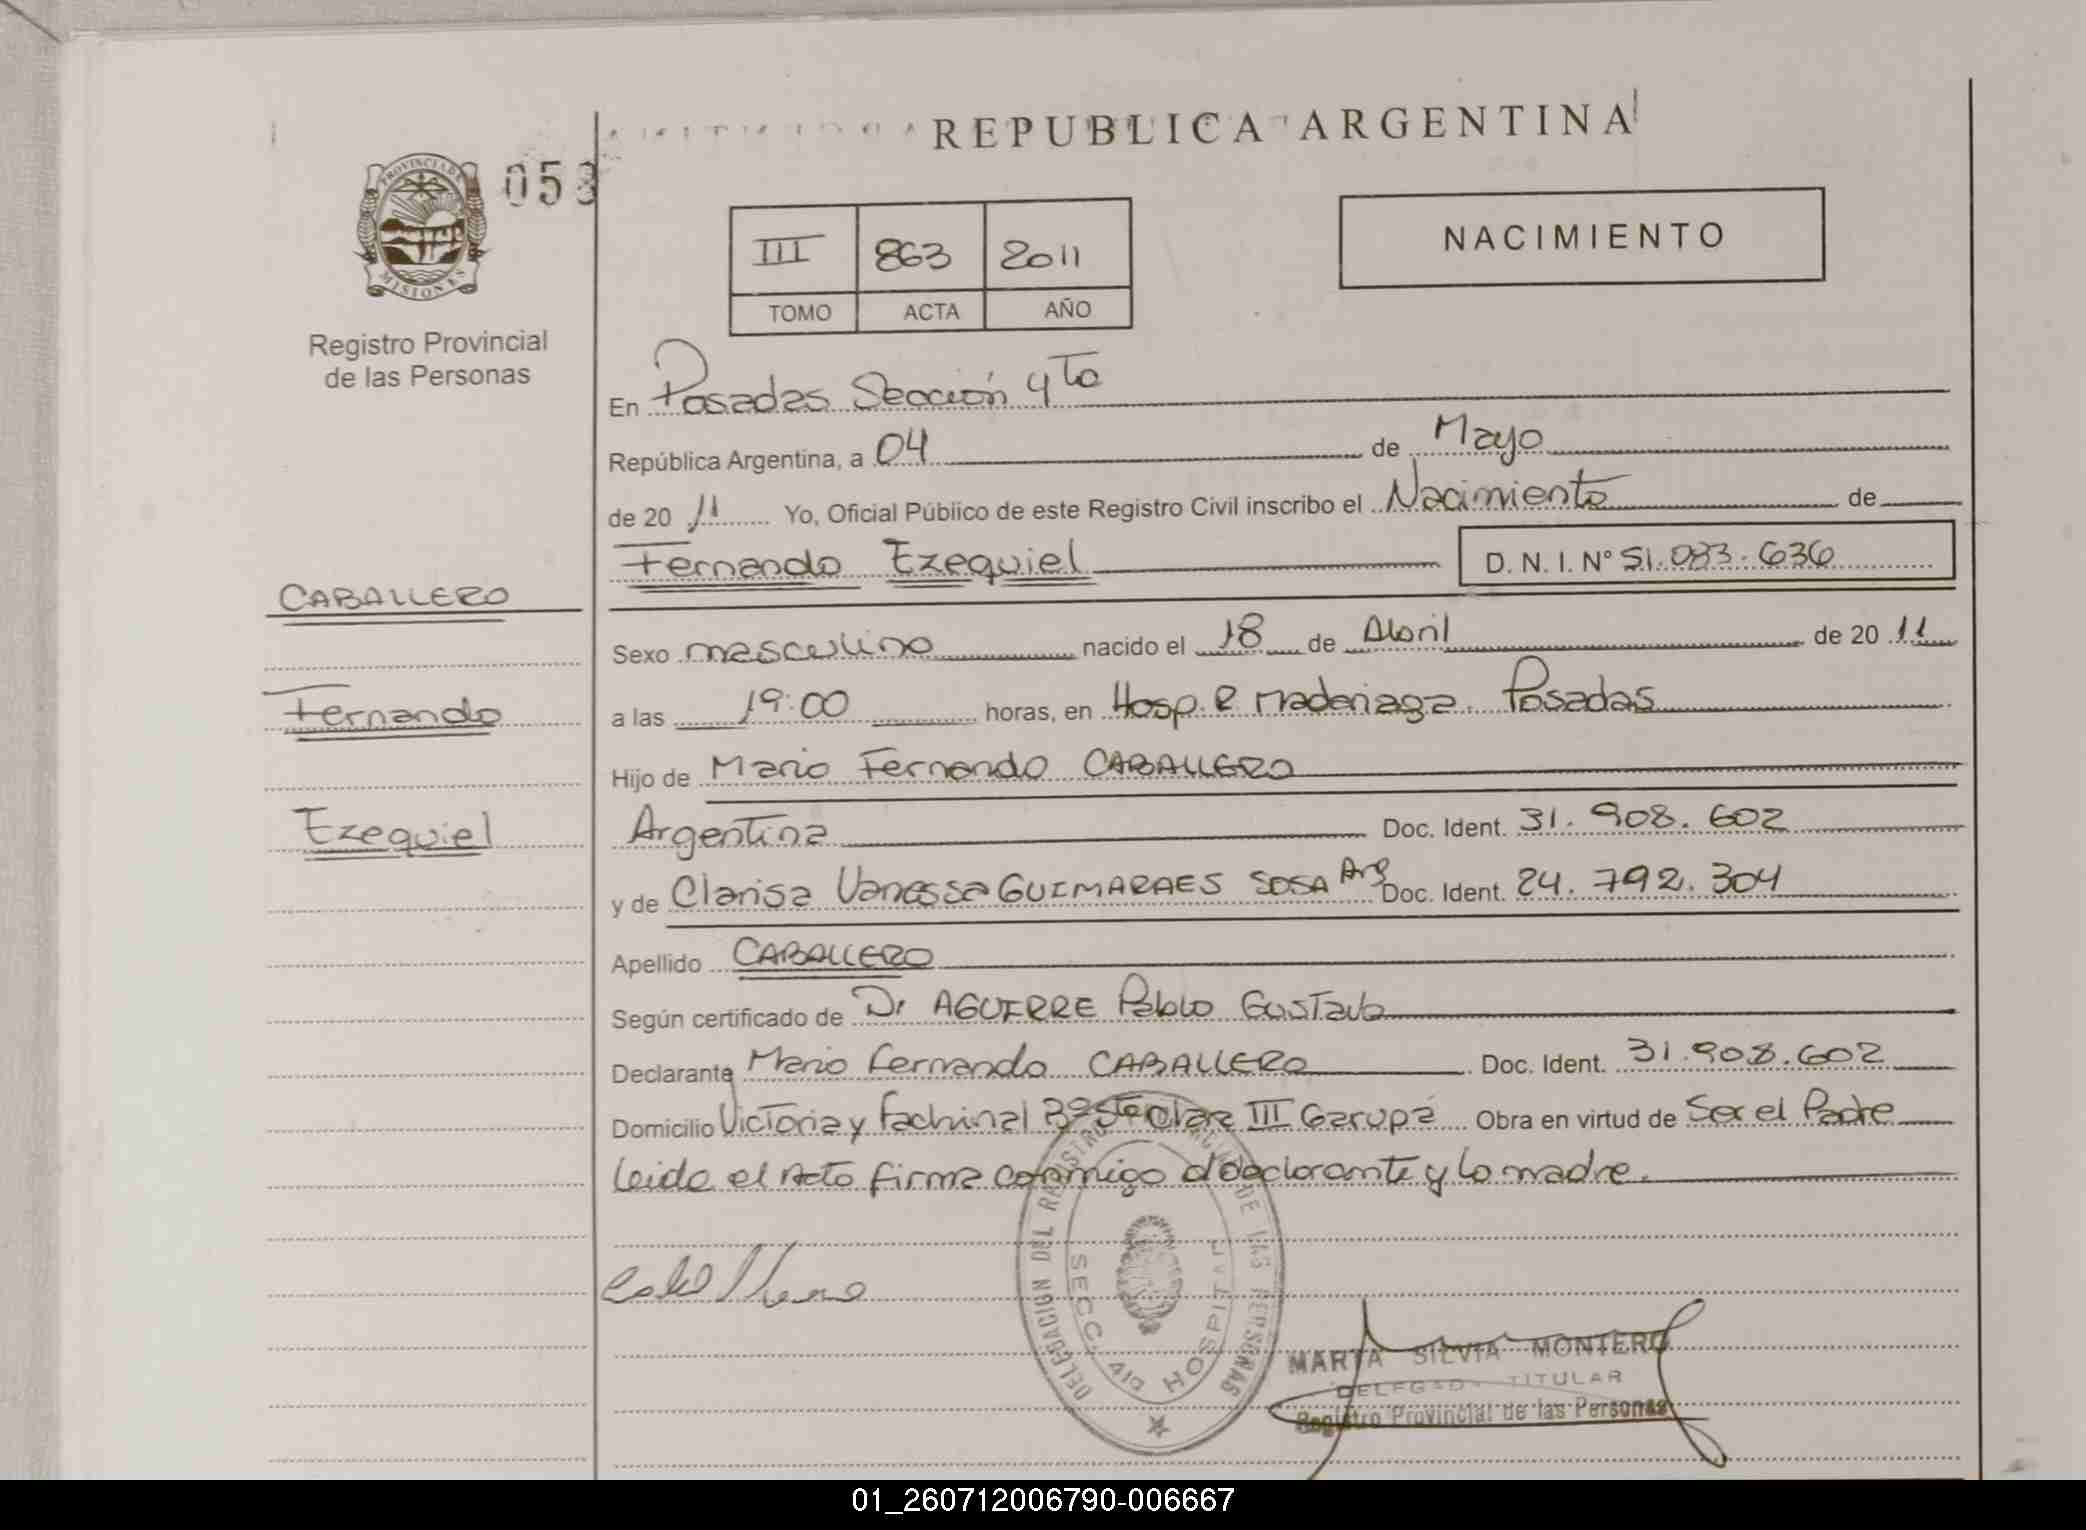 REPUBLICA ARGENTINA
PROVINCIA DE MISIONES
053
NACIMIENTO
III 863 2011
TOMO ACTA AÑO
Registro Provincial
de las Personas
En Posadas Sección 4ta
República Argentina, a 04 de Mayo
de 20 11 Yo, Oficial Público de este Registro Civil inscribo el Nacimiento de
Fernando Ezequiel D. N. I. Nº 51.083.636
CABALLERO
Fernando
Ezequiel
Sexo masculino nacido el 18 de Abril de 20 11
a las 19:00 horas, en Hosp. R Madariaga. Posadas
Hijo de Mario Fernando CABALLERO
Argentina Doc. Ident. 31.908.602
y de Clarisa Vanessa GUIMARAES SOSA Arg Doc. Ident. 24.792.304
Apellido CABALLERO
Según certificado de Dr AGUIRRE Pablo Gustavo
Declarante Mario Fernando CABALLERO Doc. Ident. 31.908.602
Domicilio Victoria y Fachinal Bº Sta Clara III Garupá Obra en virtud de Ser el Padre
Leida el Acta firma conmigo el declarante y la madre.
DELEGACION DEL REGISTRO PROVINCIAL DE LAS PERSONAS
SECC. 4ta HOSPITAL
MARTA SILVIA MONTERO
DELEGADA TITULAR
Registro Provincial de las Personas
01_260712006790-006667